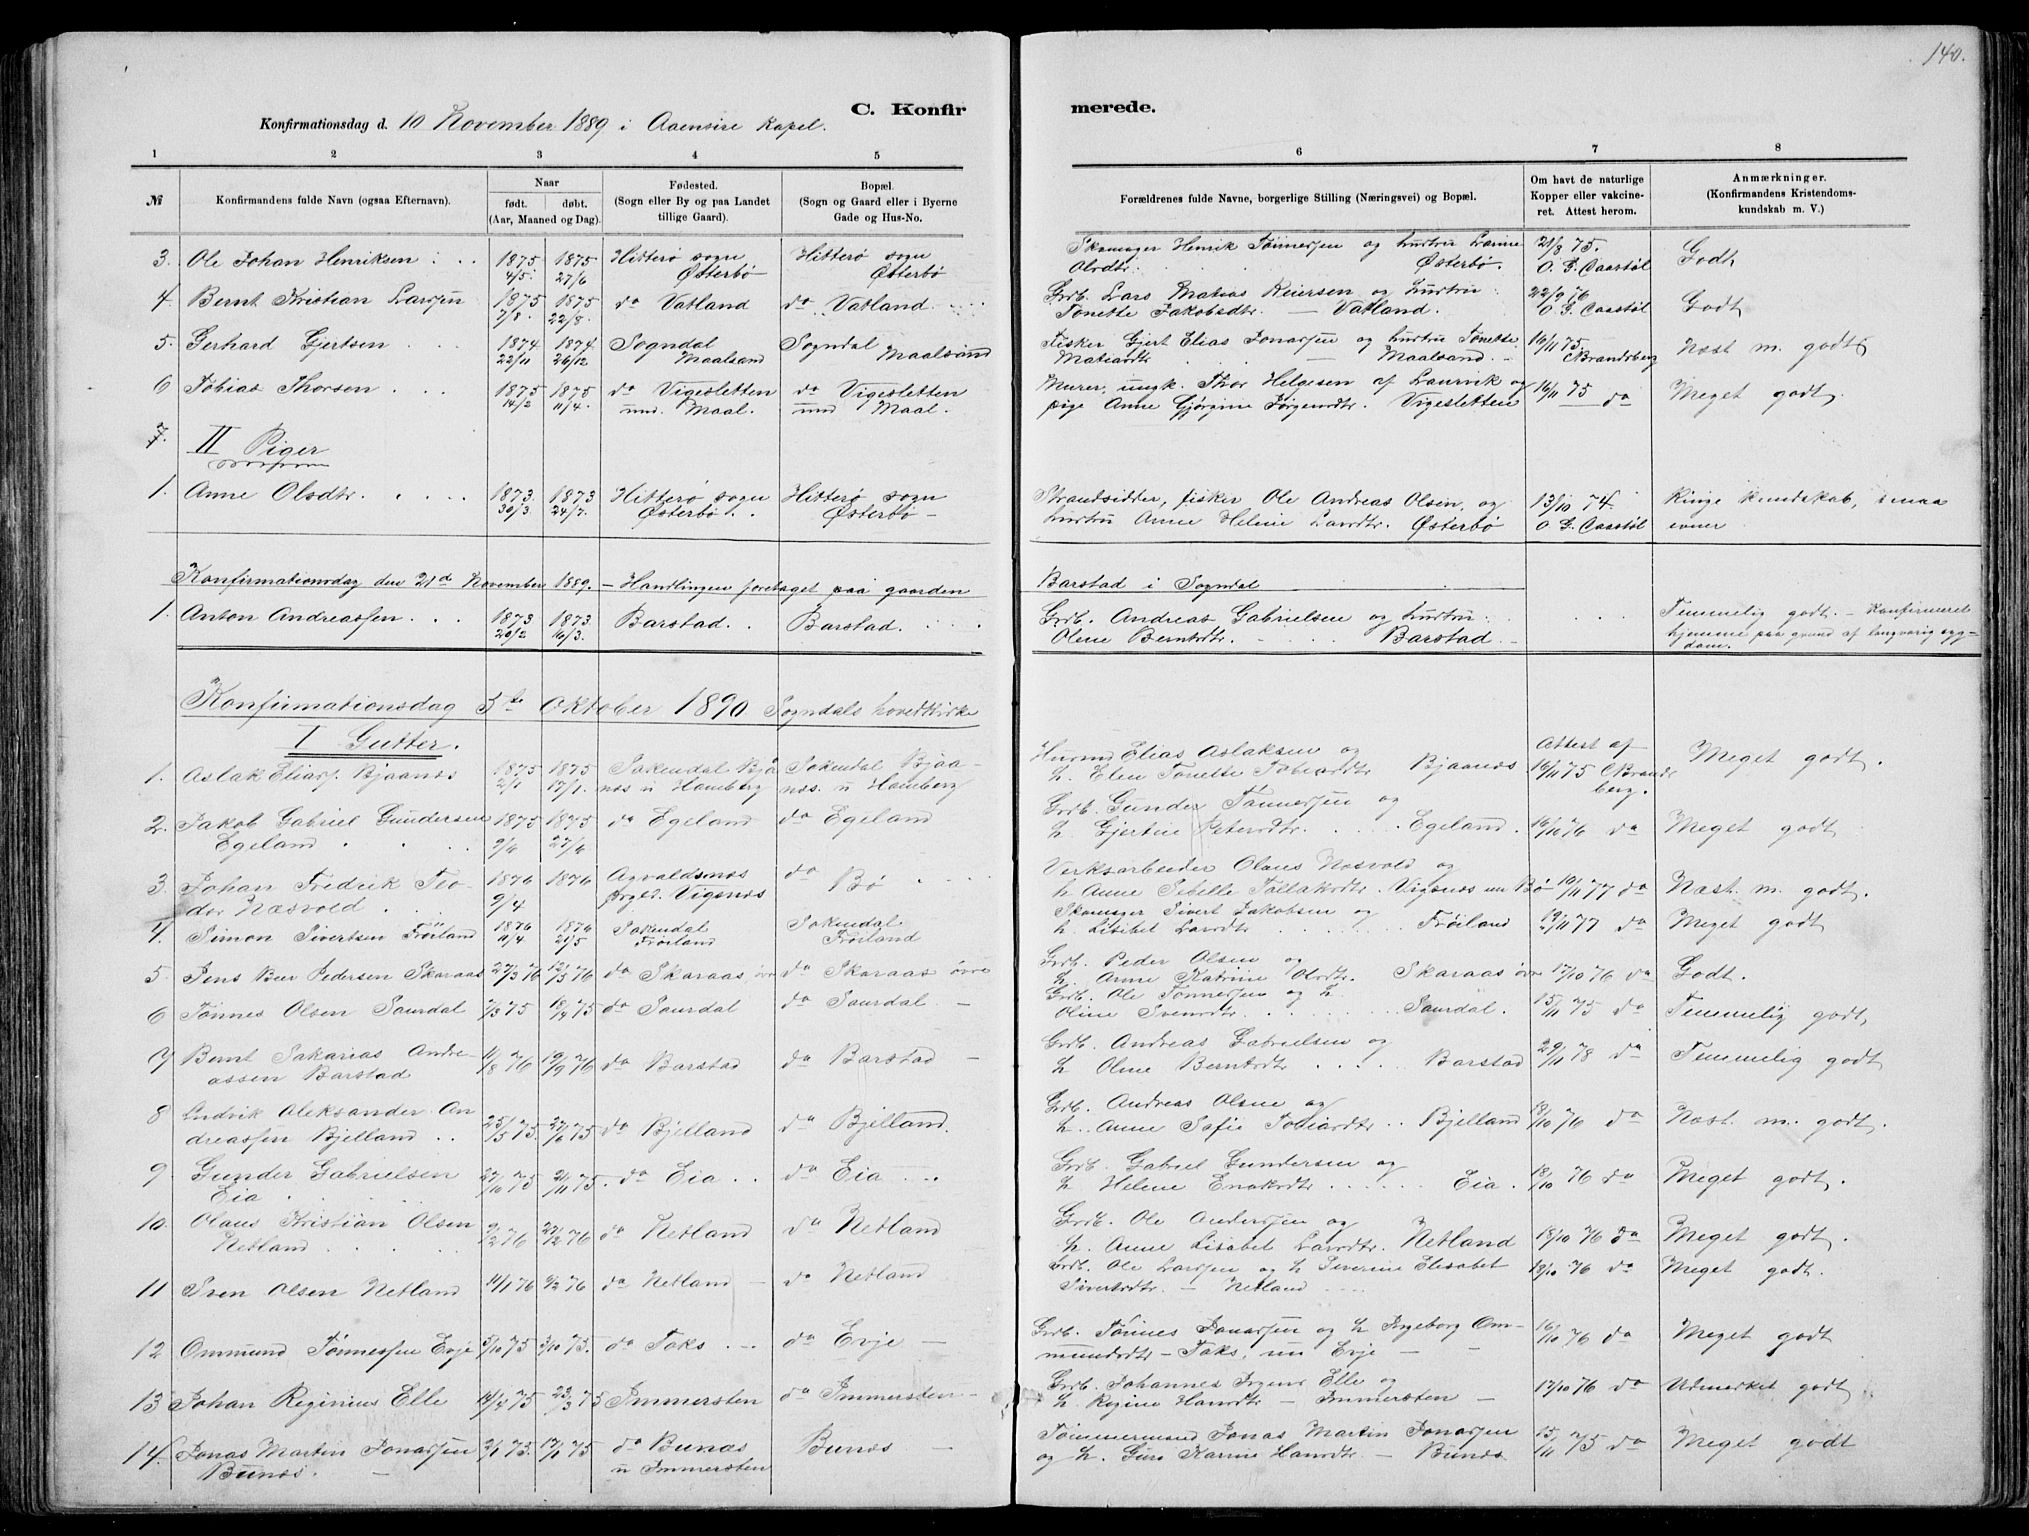 140.
C. Konfir merede.
Konfirmationsdag d. 10 November 1889 i Aaensire Kapel.
1 2 3 4 5 6 7 8
№
Konfirmandens fulde Navn (ogsaa Efternavn).
Naar
født. døbt.
(Aar, Maaned og Dag).
Fødested.
(Sogn eller By og paa Landet
tillige Gaard).
Bopæl.
(Sogn og Gaard eller i Byerne
Gade og Hus-No.
Forældrenes fulde Navne, borgerlige Stilling (Næringsvei) og Bopæl.
Om havt de naturlige
Kopper eller vakcine-
ret. Attest herom.
Anmærkninger.
(Konfirmandens Kristendoms-
kundskab m. V.)
3. Ole Johan Henriksen 1875 1875 Hitterø sogn Hitterø sogn Skomager Henrik Tønnesen og hustru Larine 21/8 75. Godt
4/5. 27/6 Østerbø Østerbø Olsdtr: Østerbø. O. G. Caastøl
4. Bernt Kristian Larsen 1875 1875 do Vatland do Vatland Grdb. Lars Matias Reiersen og hustru 22/9 76 Godt
7/8. 22/8. Tonette Jakobsdtr. — Vatland. O. G. Caastøl
5. Gerhard Gjertsen 1874 1874 Sogndal Sogndal Fisker Gjert Elias Jonassen og hustru Tonette 16/11 75. Næst m. godt
22/11 26/12. Maalsand Maalsand Matiasdtr. — Maalsand. C Brandsberg
6 Tobias Thorsen 1875 1875 do Vigesletten do Vigesletten Murer, ungk. Thor Helgesen af Laurvik og 16/11 75 do Meget godt.
14/2 11/4. und. Maal. und Maal. pige Anne Gjørgine Jørgensdtr. Vigesletten
7. II Piger
1. Anne Olsdtr. 1873. 1873 Hitterø sogn Hitterø sogn Strandsidder, fisker Ole Andreas Olsen, og 13/10 74 Ringe kundskab, smaa
30/3. 24/7. Østerbø Østerbø — hustru Anne Helene Larsdtr. Østerbø O. G. Caastøl evner
Konfirmationsdag den 21de November 1889. — Handlingen foretaget paa gaarden Barstad i Sogndal
1. Anton Andreassen 1873 1873. Barstad. Barstad. Grdb. Andreas Gabrielsen og hustru: Temmelig godt. — Konfirmeret
20/2 16/3. Oline Berntsdtr. Barstad — hjemme paa grund af langvarig syg-
dom.
Konfirmationsdag 5te Oktober 1890 Sogndals hovedkirke
I Gutter.
1. Aslak Eliass. Bjaanes 1875 1875 Sokendal Bjå Sokendal Bjaa- Husmd Elias Aslaksen og Attest af Meget godt.
2/1 17/1. nes u Hamberg nes. u Hamberg h. Elen Tonette Tobiasdtr Bjaanes 16/11 75 C Brands
berg.
2. Jakob Gabriel Gundersen 1875 1875 do Egeland do Egeland Grdb. Gunder Tønnessen og 16/10 76 do Meget godt
Egeland 9/4 27/4 h. Gjertine Petersdtr. Egeland.
3. Johan Fredrik Teo- 1876 1876 Agvaldsnes do Bø Verksarbeider Olaus Næsvold og 10/11 77 do Næst. m. godt.
dor Næsvold 9/4 prgld. Vigsnes h Anne Sibelle Tallaksdtr. Vigsnes nu Bø
4. Simon Sivertsen Frøiland 1876 1876 Sokendal Sokendal Skomager Sivert Jakobsen og 19/11 77 do Meget godt
11/4. 21/5 Frøiland Frøiland h. Lisabet Larsdtr Frøiland
5. Jens Beer Pedersen Skaraas 27/3 76 12/5 76 do Skaraas øvre do Skaraas øvre Grdb. Peder Olsen og 17/10 76 do Godt.
h. Anne Katrine Olsdtr. Skaraas øvre
6 Tønnes Olsen Saurdal 7/3 75 18/4 75 do Saurdal do Saurdal — Grdb. Ole Tønnessen og h 15/11 75 do Temmelig godt
Oline Svensdtr. Saurdal.
7 Bernt Sakarias Andre- 11/8 76 10/9 76 do Barstad do Barstad — Grdb. Andreas Gabrielsen og 29/11 78 do Temmelig godt
assen Barstad h Oline Berntsdtr Barstad
8 Ludvik Aleksander An 25/5 75. 27/6 75 do Bjelland do Bjelland. Grdb. Andreas Olsen og 18/10 76 do Næst. m. godt.
dreassen Bjelland h. Anne Sofie Tobiasdtr Bjelland
9. Gunder Gabrielsen 27/10 75 21/11 75. do Eia do Eia Grdb. Gabriel Gundersen og 18/10 76 do Meget godt.
Eia h. Helene Enoksdtr Eia.
10. Olaus Kristian Olsen 9/2 76 27/2 76 do Netland do Netland Grdb. Ole Andersen og 18/10 76 do Meget godt.
Netland h. Anne Lisabet Larsdtr. Netland
11 Sven Olsen Netland 14/1 76 9/2 76 do Netland — do Netland Grdb. Ole Larssen og h Severine Elisabet 18/10 76 do Meget godt.
Sivertsdtr. — Netland
12 Ommund Tønnessen Evje 5/10 75 3/10 75. do Foks do Evje — Grdb. Tønnes Jonassen og h Ingeborg Om- 16/10 76 do Meget godt
mundsdtr — Foks, nu Evje —
13 Johan Reginius Elle 14/4 75 23/3 75 Immersten do Immersten Grdb. Johannes Irgens Elle og 17/10 76 do Udmerket godt
h Regine Hansdtr — Immersten —
14. Jonas Martin Jonassen 3/1 75. 17/1 75 do Bunæs Bunæs — Tømmermand Jonas Martin Jonassen 15/11 75 do Meget godt
Bunæs. — u Immersten og h. Guro Karine Hansdtr — Bunæs